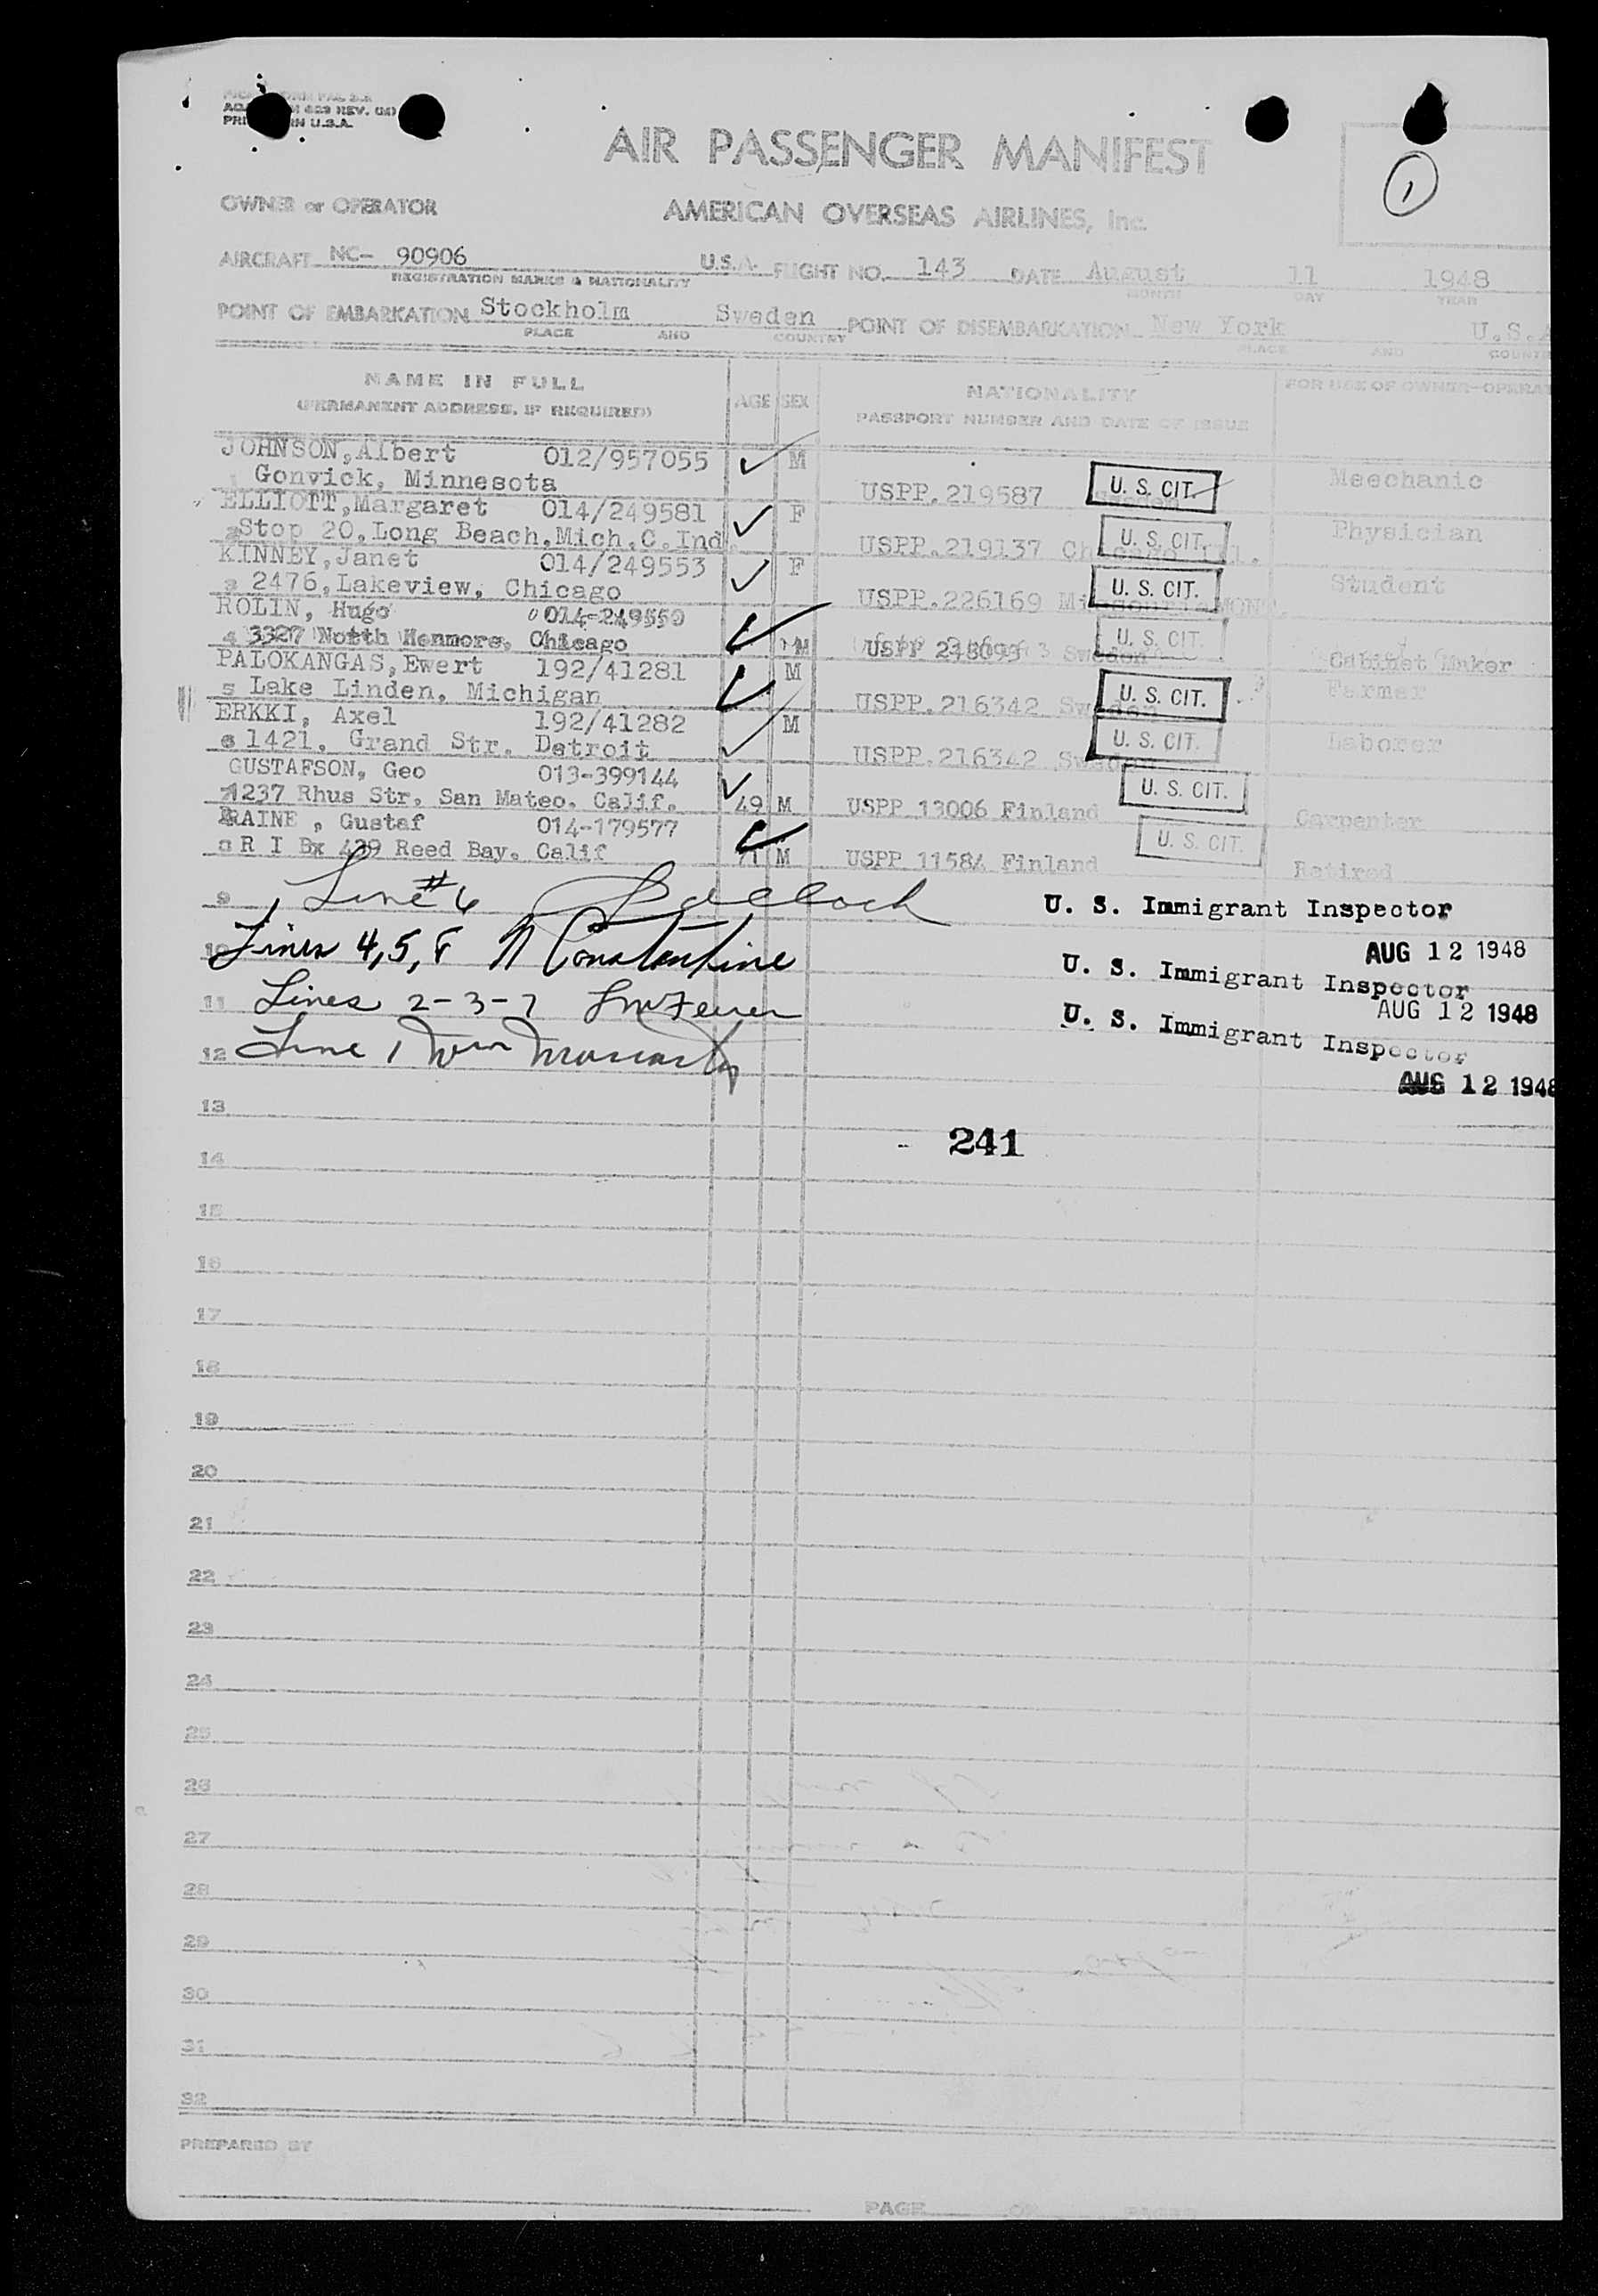 PRINTED IN U.S.A.
AIR PASSENGER MANIFEST
1
OWNER or OPERATOR AMERICAN OVERSEAS AIRLINES, Inc.
AIRCRAFT NC- 90906 U.S.A. FLIGHT NO. 143 DATE August 11 1948
REGISTRATION MARKS & NATIONALITY MONTH DAY YEAR
POINT OF EMBARKATION Stockholm Sweden POINT OF DISEMBARKATION New York U.S.A
PLACE AND COUNTRY PLACE AND COUNTR
NAME IN FULL AGE SEX NATIONALITY FOR USE OF OWNER-OPERAT
(PERMANENT ADDRESS, IF REQUIRED) PASSPORT NUMBER AND DATE OF ISSUE
JOHNSON,Albert 012/957055 M
1 Gonvick, Minnesota USPP.219587 Sweden U. S. CIT. Meechanic
ELLIOTT,Margaret 014/249581 F
2 Stop 20,Long Beach,Mich.C.Ind. USPP.219137 Chicago Ill. U. S. CIT. Physician
KINNEY,Janet 014/249553 F
3 2476,Lakeview, Chicago USPP.226169 U. S. CIT. Student
ROLIN, Hugo
4 3327 North Kenmore, Chicago M USPP Sweden U. S. CIT. Cabinet Maker
PALOKANGAS,Ewert 192/41281 M
5 Lake Linden, Michigan USPP.216342 Sweden U. S. CIT. Farmer
ERKKI, Axel 192/41282 M
6 1421. Grand Str. Detroit USPP.216342 Sweden U. S. CIT. Laborer
GUSTAFSON, Geo 013-399144
7 1237 Rhus Str. San Mateo. Calif. 49 M USPP 13006 Finland U. S. CIT. Carpenter
RAINE , Gustaf 014-179577
8 R I Bx 429 Reed Bay. Calif 71 M USPP 11584 Finland U. S. CIT. Retired
9 Line #6 U. S. Immigrant Inspector
AUG 12 1948
10 Lines 4,5,8 N Constantine U. S. Immigrant Inspector
AUG 12 1948
11 Lines 2-3-7 U. S. Immigrant Inspector
12 Line 1
AUG 12 1948
13
241
14
15
16
17
18
19
20
21
22
23
24
25
26
27
28
29
30
31
32
PREPARED BY
PAGE OF PAGES